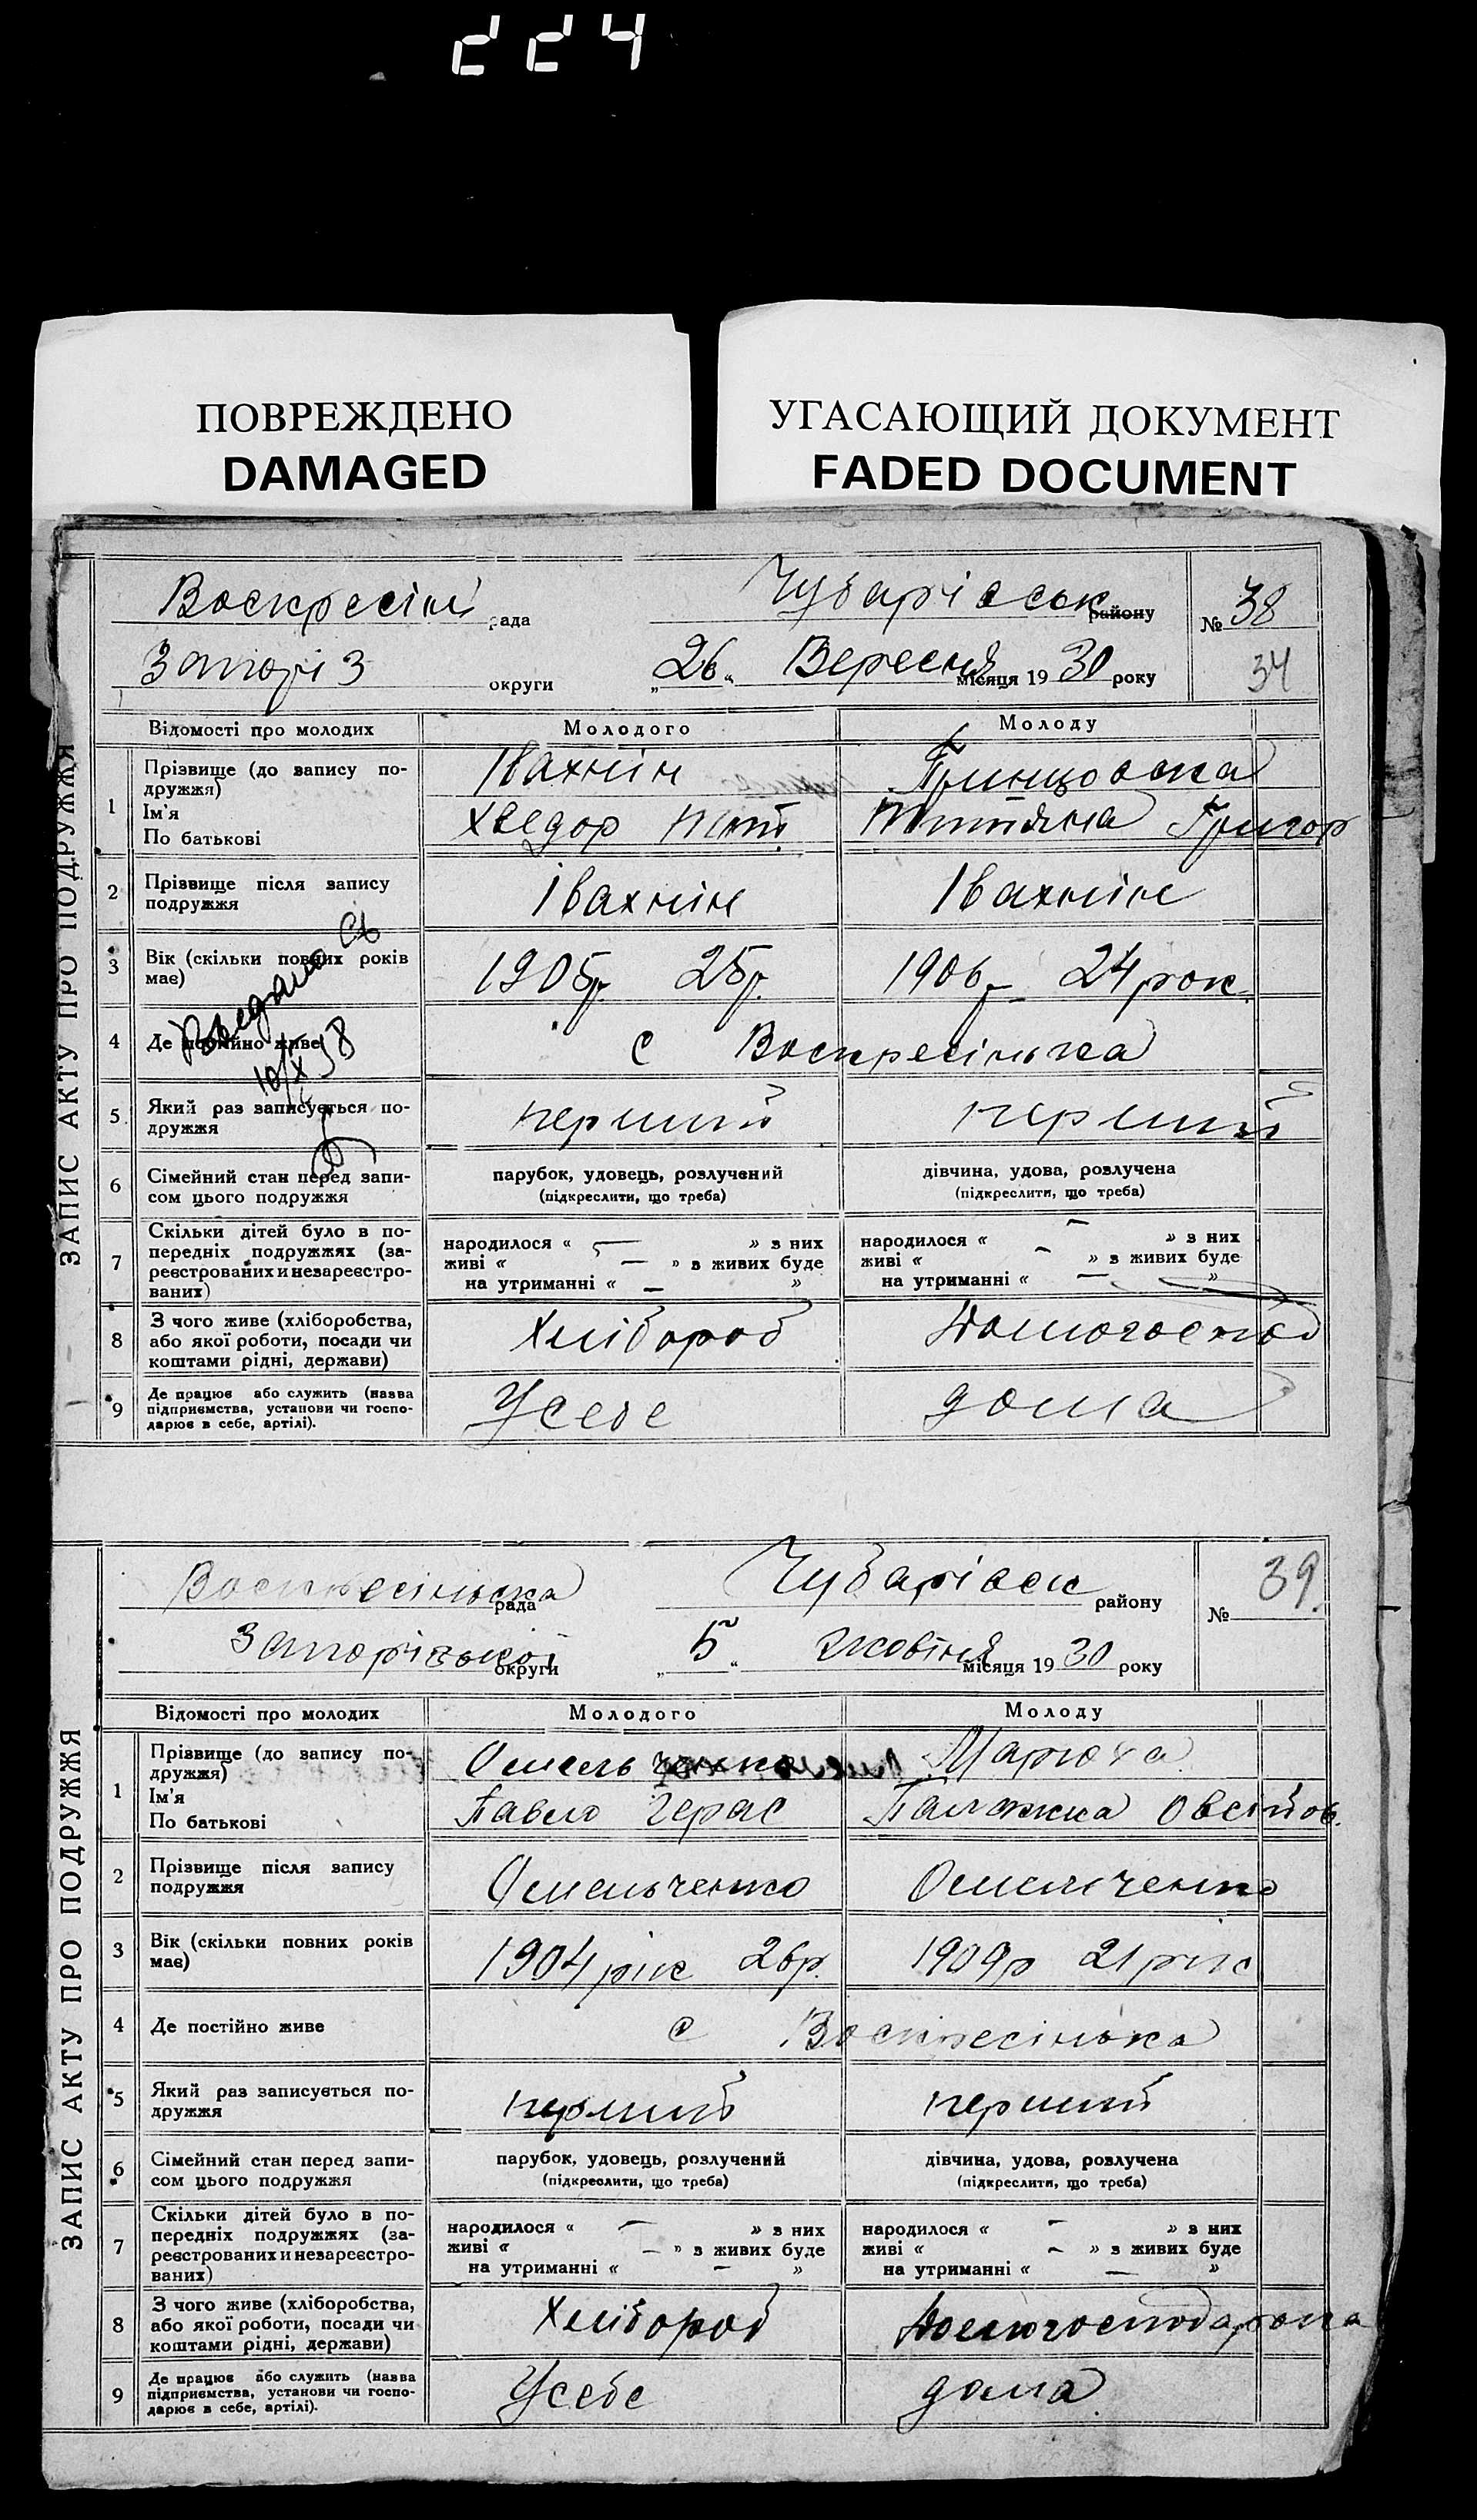 224
ПОВРЕЖДЕНО
DAMAGED
УГАСАЮЩИЙ ДОКУМЕНТ
FADED DOCUMENT
ЗАПИС АКТУ ПРО ПОДРУЖЖЯ
Воскресінс рада Чубарівськ району № 38
Запоріз округи „26“ Вересня місяця 1930 року 34
Відомості про молодих Молодого Молоду
1 Прізвище (до запису подружжя) Івахнін Гринцовска
Ім'я
По батькові Хведор Тит. Титяна Григор
2 Прізвище після запису подружжя Івахнін Івахнін
3 Вік (скільки повних років має) 1905р. 25р. 1906р 24 рок.
4 Де постійно живе с Воскресінька
10/X 38
5 Який раз записується подружжя перший перший
6 Сімейний стан перед записом цього подружжя парубок, удовець, розлучений (підкреслити, що треба) дівчина, удова, розлучена (підкреслити, що треба)
7 Скільки дітей було в попередніх подружжях (зареєстрованих и незареєстрованих) народилося « — » з них живі « — » з живих буде на утриманні « — » народилося « — » з них живі « — » з живих буде на утриманні « — »
8 З чого живе (хліборобства, або якої роботи, посади чи коштами рідні, держави) Хлібороб Домогоспод
9 Де працює або служить (назва підприємства, установи чи господарює в себе, артілі). Усебе дома
ЗАПИС АКТУ ПРО ПОДРУЖЖЯ
Воскресінська рада Чубарівск району № 39.
Запорізької округи „5“ жовтня місяця 1930 року
Відомості про молодих Молодого Молоду
1 Прізвище (до запису подружжя) Омельченко
Ім'я
По батькові Павло Герас Палажка
2 Прізвище після запису подружжя Омельченко Омельченко
3 Вік (скільки повних років має) 1904 рік 26р. 1909р 21 рік
4 Де постійно живе с Воскресінька
5 Який раз записується подружжя перший перший
6 Сімейний стан перед записом цього подружжя парубок, удовець, розлучений (підкреслити, що треба) дівчина, удова, розлучена (підкреслити, що треба)
7 Скільки дітей було в попередніх подружжях (зареєстрованих и незареєстрованих) народилося « — » з них живі « — » з живих буде на утриманні « — » народилося « — » з них живі « — » з живих буде на утриманні « — »
8 З чого живе (хліборобства, або якої роботи, посади чи коштами рідні, держави) Хлібороб Домогосподарока
9 Де працює або служить (назва підприємства, установи чи господарює в себе, артілі). Усебе дома